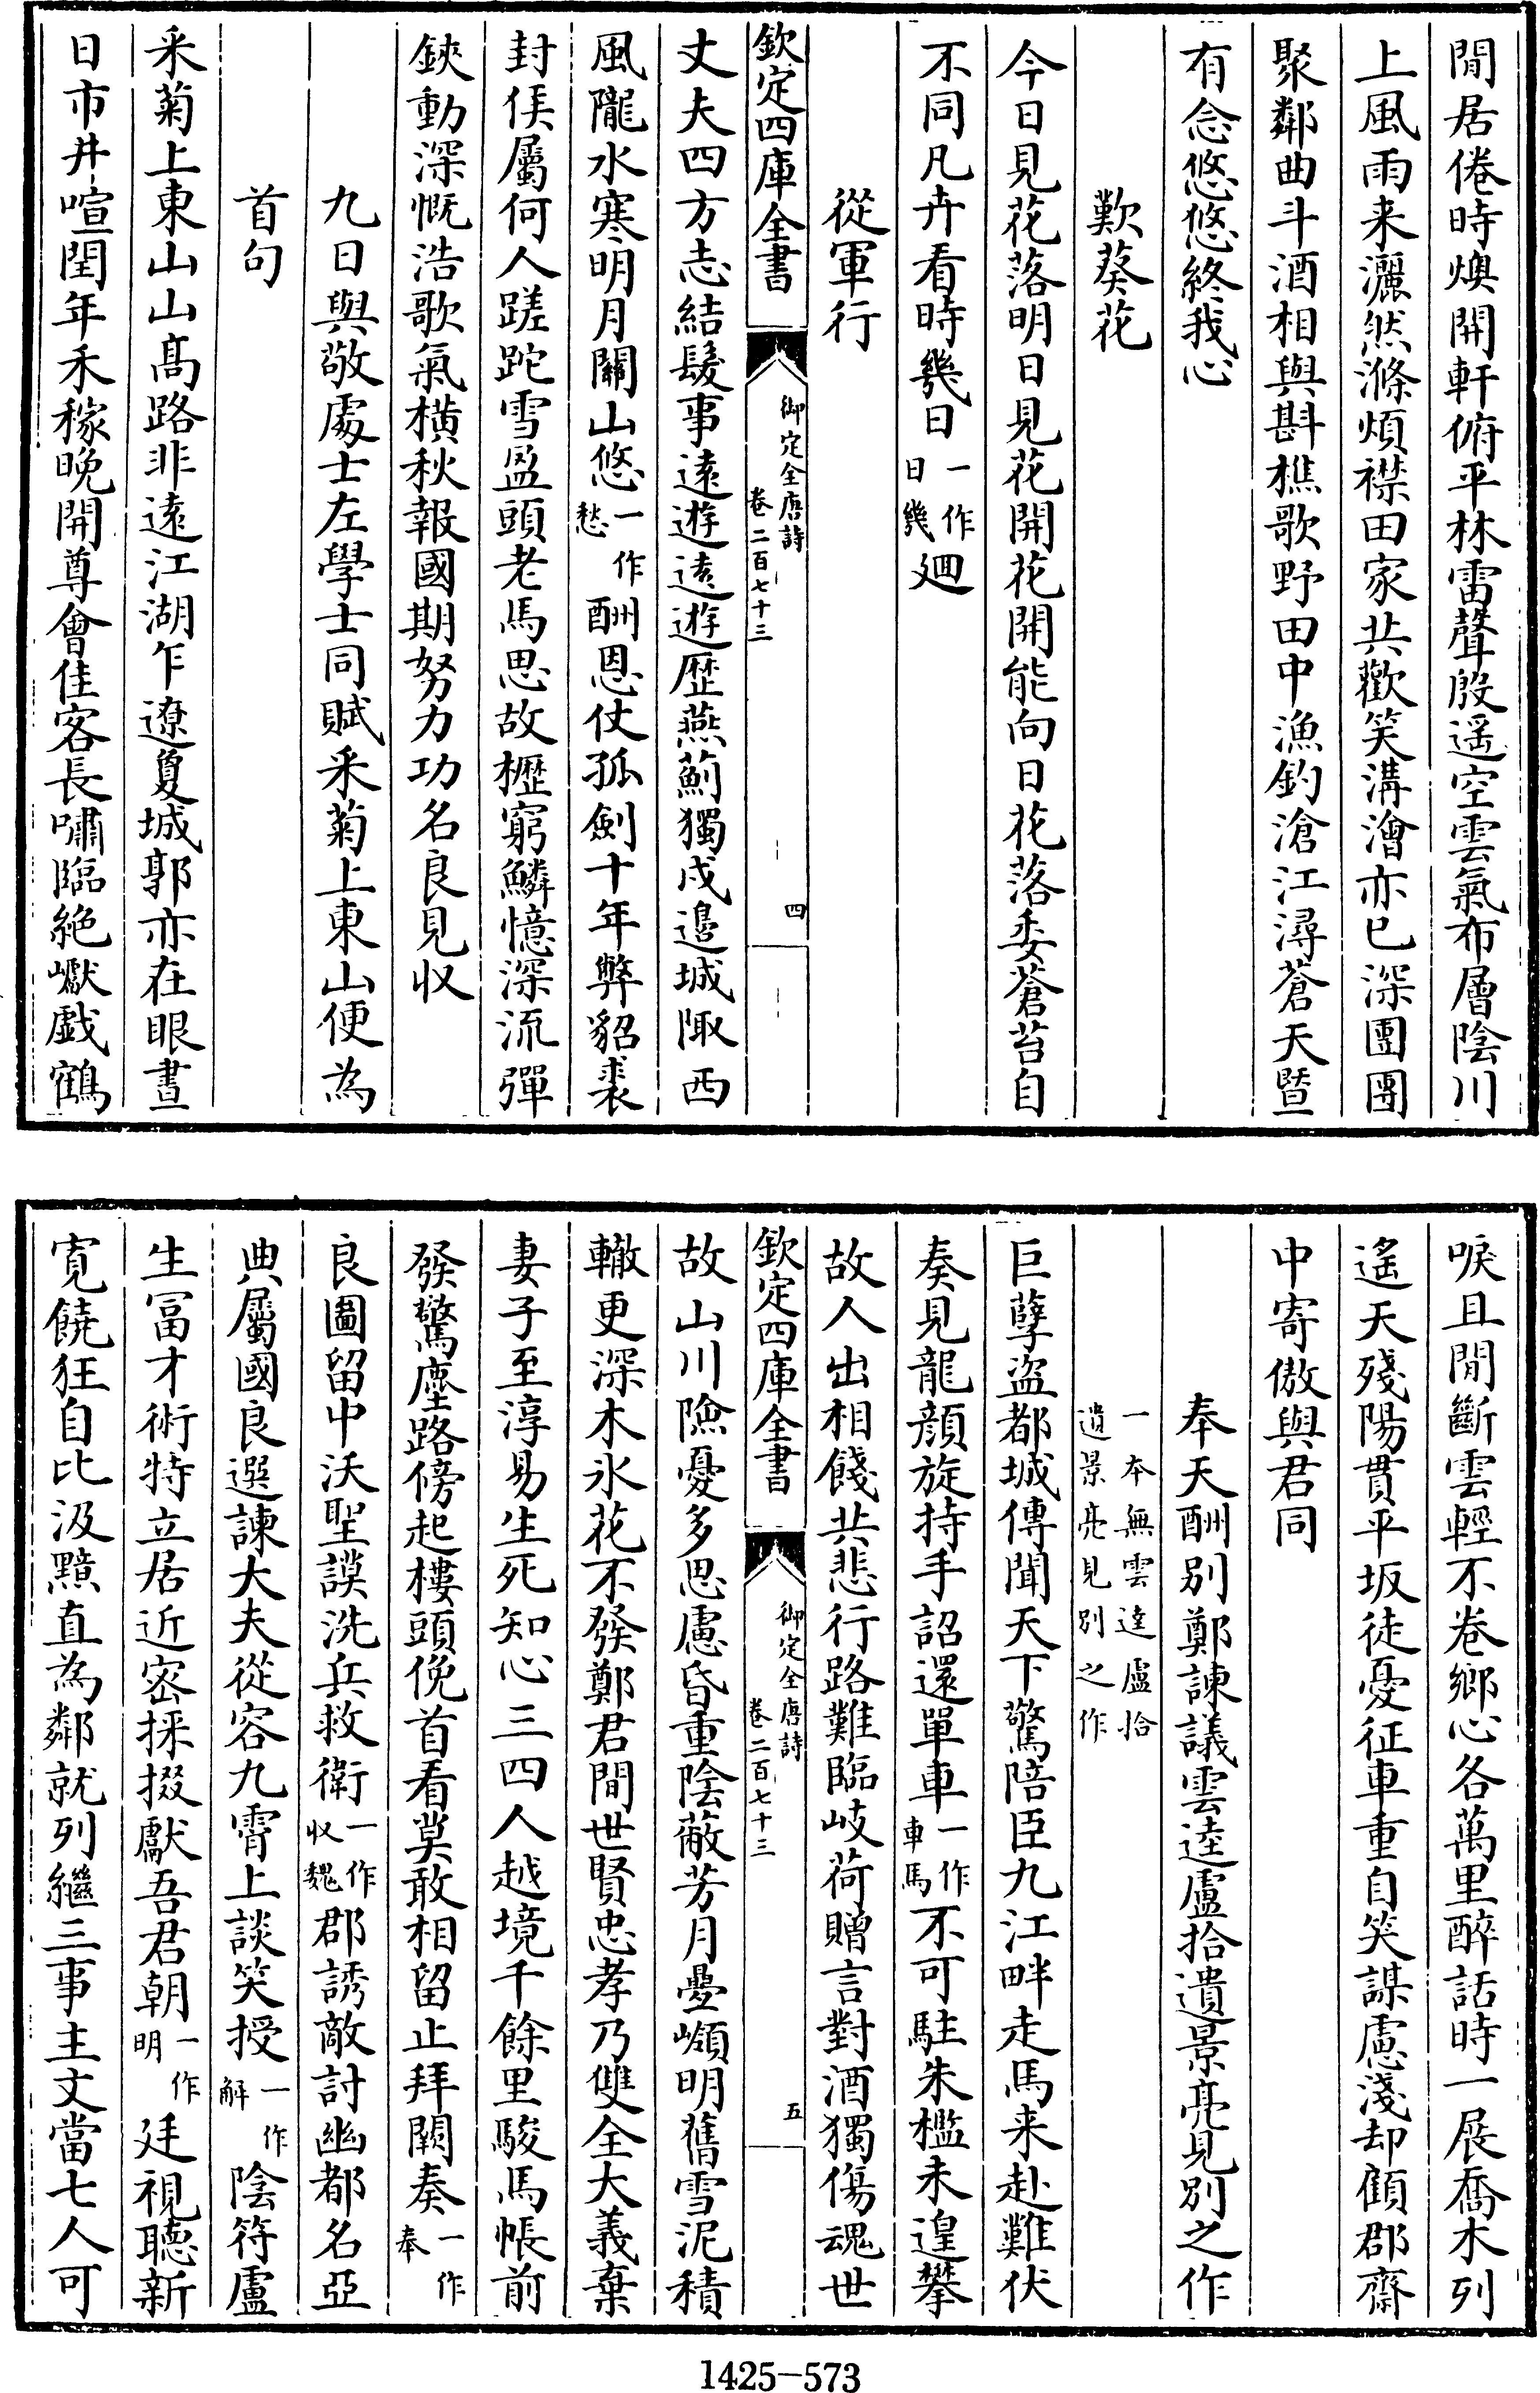 閒居倦時燠開軒俯平林雷聲殷遥空雲氣布層陰川
上風雨来灑然滌煩襟田家共歡笑溝澮亦已深團團
聚鄰曲斗酒相與斟樵歌野田中漁釣滄江潯蒼天曁
有念悠悠終我心
歎葵花
今日見花落明日見花開花開能向日花落委蒼苔自
不同凡卉看時幾日一作日幾廻
從軍行
欽定四庫全書 御定全唐詩 卷二百七十三 四
丈夫四方志結髮事遠遊遠遊歴燕薊獨戍邉城陬西
風隴水寒明月關山悠一作愁酬恩仗孤劍十年弊貂裘
封侯屬何人蹉跎雪盈頭老馬思故櫪窮鱗憶深流彈
鋏動深慨浩歌氣橫秋報國期努力功名良見収
九日與敬處士左學士同賦采菊上東山便為
首句
采菊上東山山髙路非遠江湖乍遼夐城郭亦在眼晝
日市井喧閏年禾稼晚開尊會佳客長嘯臨絶巘戲鶴
唳且閒斷雲輕不卷鄉心各萬里醉話時一展喬木列
遙天殘陽貫平坂徒憂征車重自笑謀慮淺却顧郡齋
中寄傲與君同
奉天酬别鄭諫議雲逵盧拾遺景亮見别之作
一本無雲逵盧拾遺景亮見别之作
巨孽盜都城傳聞天下驚陪臣九江畔走馬来赴難伏
奏見龍顏旋持手詔還單車一作車馬不可駐朱檻未遑攀
故人出相餞共悲行路難臨岐荷贈言對酒獨傷魂世
欽定四庫全書 御定全唐詩 卷二百七十三 五
故山川險憂多思慮昏重陰蔽芳月疊嶺明舊雪泥積
轍更深木氷花不發鄭君間世賢忠孝乃雙全大義棄
妻子至淳易生死知心三四人越境千餘里駿馬帳前
發驚塵路傍起樓頭俛首看莫敢相留止拜闕奏一作奉
良圖留中沃聖謨洗兵救衛一作収魏郡誘敵討幽都名亞
典屬國良選諫大夫從容九霄上談笑授一作解陰符盧
生冨才術特立居近宻採掇獻吾君朝一作明廷視聽新
寛饒狂自比汲黯直為鄰就列繼三事主文當七人可
1425-573